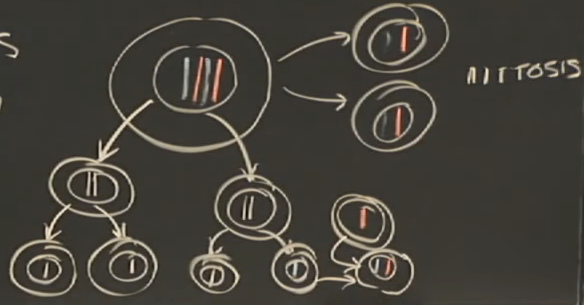 S
MITOSIS